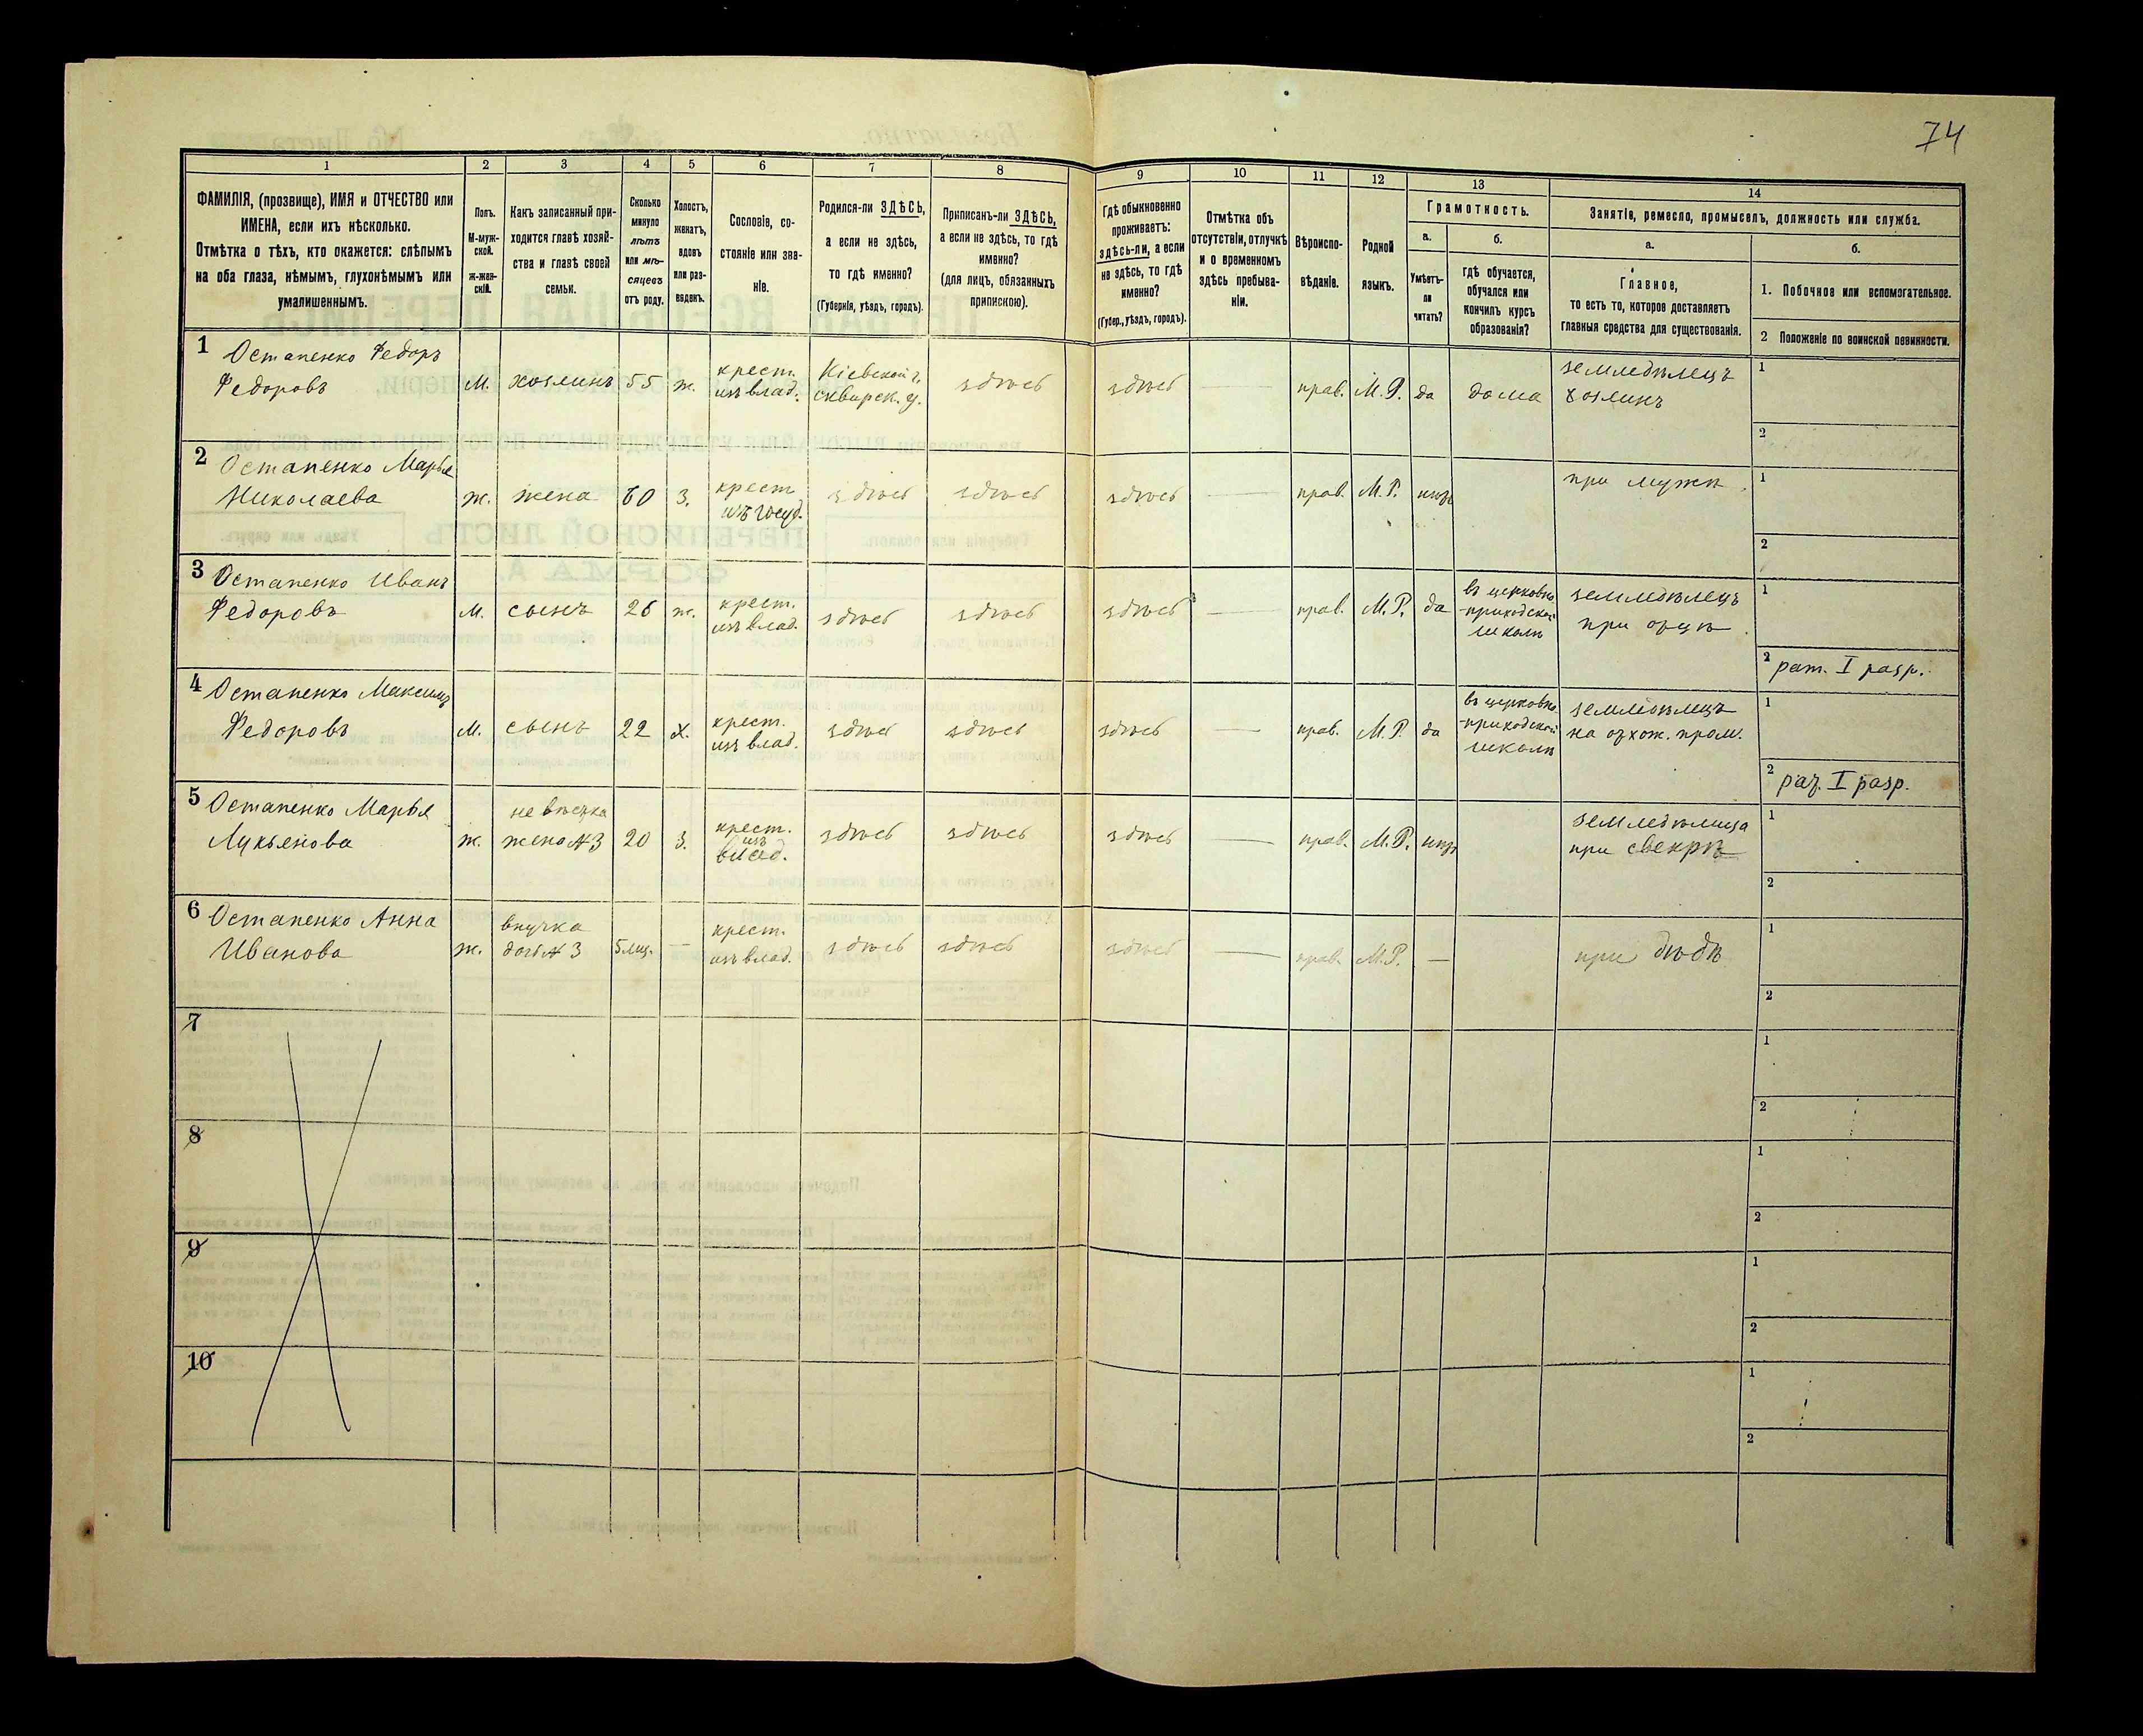 74
1 2 3 4 5 6 7 8 9 10 11 12 13 14
ФАМИЛІЯ, (прозвище), ИМЯ и ОТЧЕСТВО или
ИМЕНА, если ихъ нѣсколько.
Отмѣтка о тѣхъ, кто окажется: слѣпымъ
на оба глаза, нѣмымъ, глухонѣмымъ или
умалишеннымъ.
Полъ.
М-муж-
ской.
ж-жен-
скій.
Какъ записанный при-
ходится главѣ хозяй-
ства и главѣ своей
семьи.
Сколько
минуло
лѣтъ
или мѣ-
сяцевъ
отъ роду.
Холостъ,
женатъ,
вдовъ
или раз-
веденъ.
Сословіе, со-
стояніе или зва-
ніе.
Родился-ли ЗДѢСЬ,
а если не здѣсь,
то гдѣ именно?
(Губернія, уѣздъ, городъ).
Приписанъ-ли ЗДѢСЬ,
а если не здѣсь, то гдѣ
именно?
(для лицъ, обязанныхъ
припискою).
Гдѣ обыкновенно
проживаетъ:
здѣсь-ли, а если
не здѣсь, то гдѣ
именно?
(Губер., уѣздъ, городъ).
Отмѣтка объ
отсутствіи, отлучкѣ
и о временномъ
здѣсь пребыва-
ніи.
Вѣроиспо-
вѣданіе.
Родной
языкъ.
Грамотность.
а.
Умѣетъ-
ли
читать?
б.
гдѣ обучается,
обучался или
кончилъ курсъ
образованія?
Занятіе, ремесло, промыселъ, должность или служба.
а.
Главное,
то есть то, которое доставляетъ
главныя средства для существованія.
б.
1. Побочное или вспомогательное.
2 Положеніе по воинской повинности.
1 Остапенко Федоръ
Федоровъ
М. хозяинъ 55 ж.
крест.
изъ влад.
Кіевской г.
сквирск. у.
здѣсь здѣсь — прав. М.Р. да дома
земледѣлецъ
хозяинъ
1
2
2 Остапенко Марья
Николаева
ж. жена 60 з.
крест
изъ госуд.
здѣсь здѣсь здѣсь — прав. М.Р. нѣтъ
при мужѣ
1
2
3 Остапенко Иванъ
Федоровъ
М. сынъ 26 ж.
крест.
изъ влад.
здѣсь здѣсь здѣсь — прав. М.Р. да
въ церковно
-приходской
школѣ
земледѣлецъ
при отцѣ
1
2 рат. I разр.
4 Остапенко Максимъ
Федоровъ
М. сынъ 22 х.
крест.
изъ влад.
здѣсь здѣсь здѣсь — прав. М.Р. да
въ церковно
-приходской
школѣ
земледѣлецъ
на отхож. пром.
1
2 рат. I разр.
5 Остапенко Марья
Лукьянова
ж.
невѣстка
жена №3
20 з.
крест.
изъ
влад.
здѣсь здѣсь здѣсь — прав. М.Р. нѣтъ
земледѣлица
при свекрѣ
1
2
6 Остапенко Анна
Иванова
ж.
внучка
дочь №3
5 мц. —
крест.
изъ влад.
здѣсь здѣсь здѣсь — прав. М.Р. —
при дѣдѣ
1
2
7
1
2
8
1
2
9
1
2
10
1
2